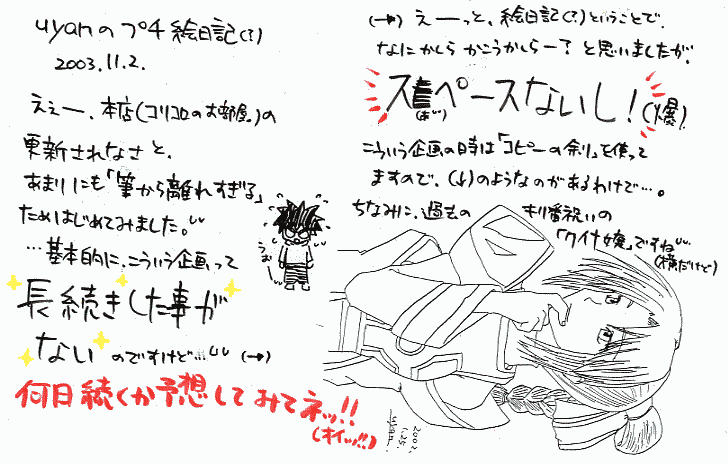 uyanのプチ絵日記(?)
2003.11.2.
えぇー、本店(コリコロのお部屋)の
更新されなさと、
あまりにも「筆から離れすぎる」
ためはじめてみました。
…基本的に、こういう企画って
長続きした事が
ないのですけど…(→)
何日続くか予想してみてネッ!!
(オイッ!!)
うぉー
(→)えーっと、絵日記(?)ということで、
なにかしらかこうかしらー?と思いましたが、
スペースないし!(爆)
こういう企画の時は「コピーの余り」を使って
ますので、(↓)のようなのがあるわけで…。
ちなみに、過去の キリ番祝いの
「クイナ嬢」ですね
(横だけど)
2002.
1.25.
uyan.